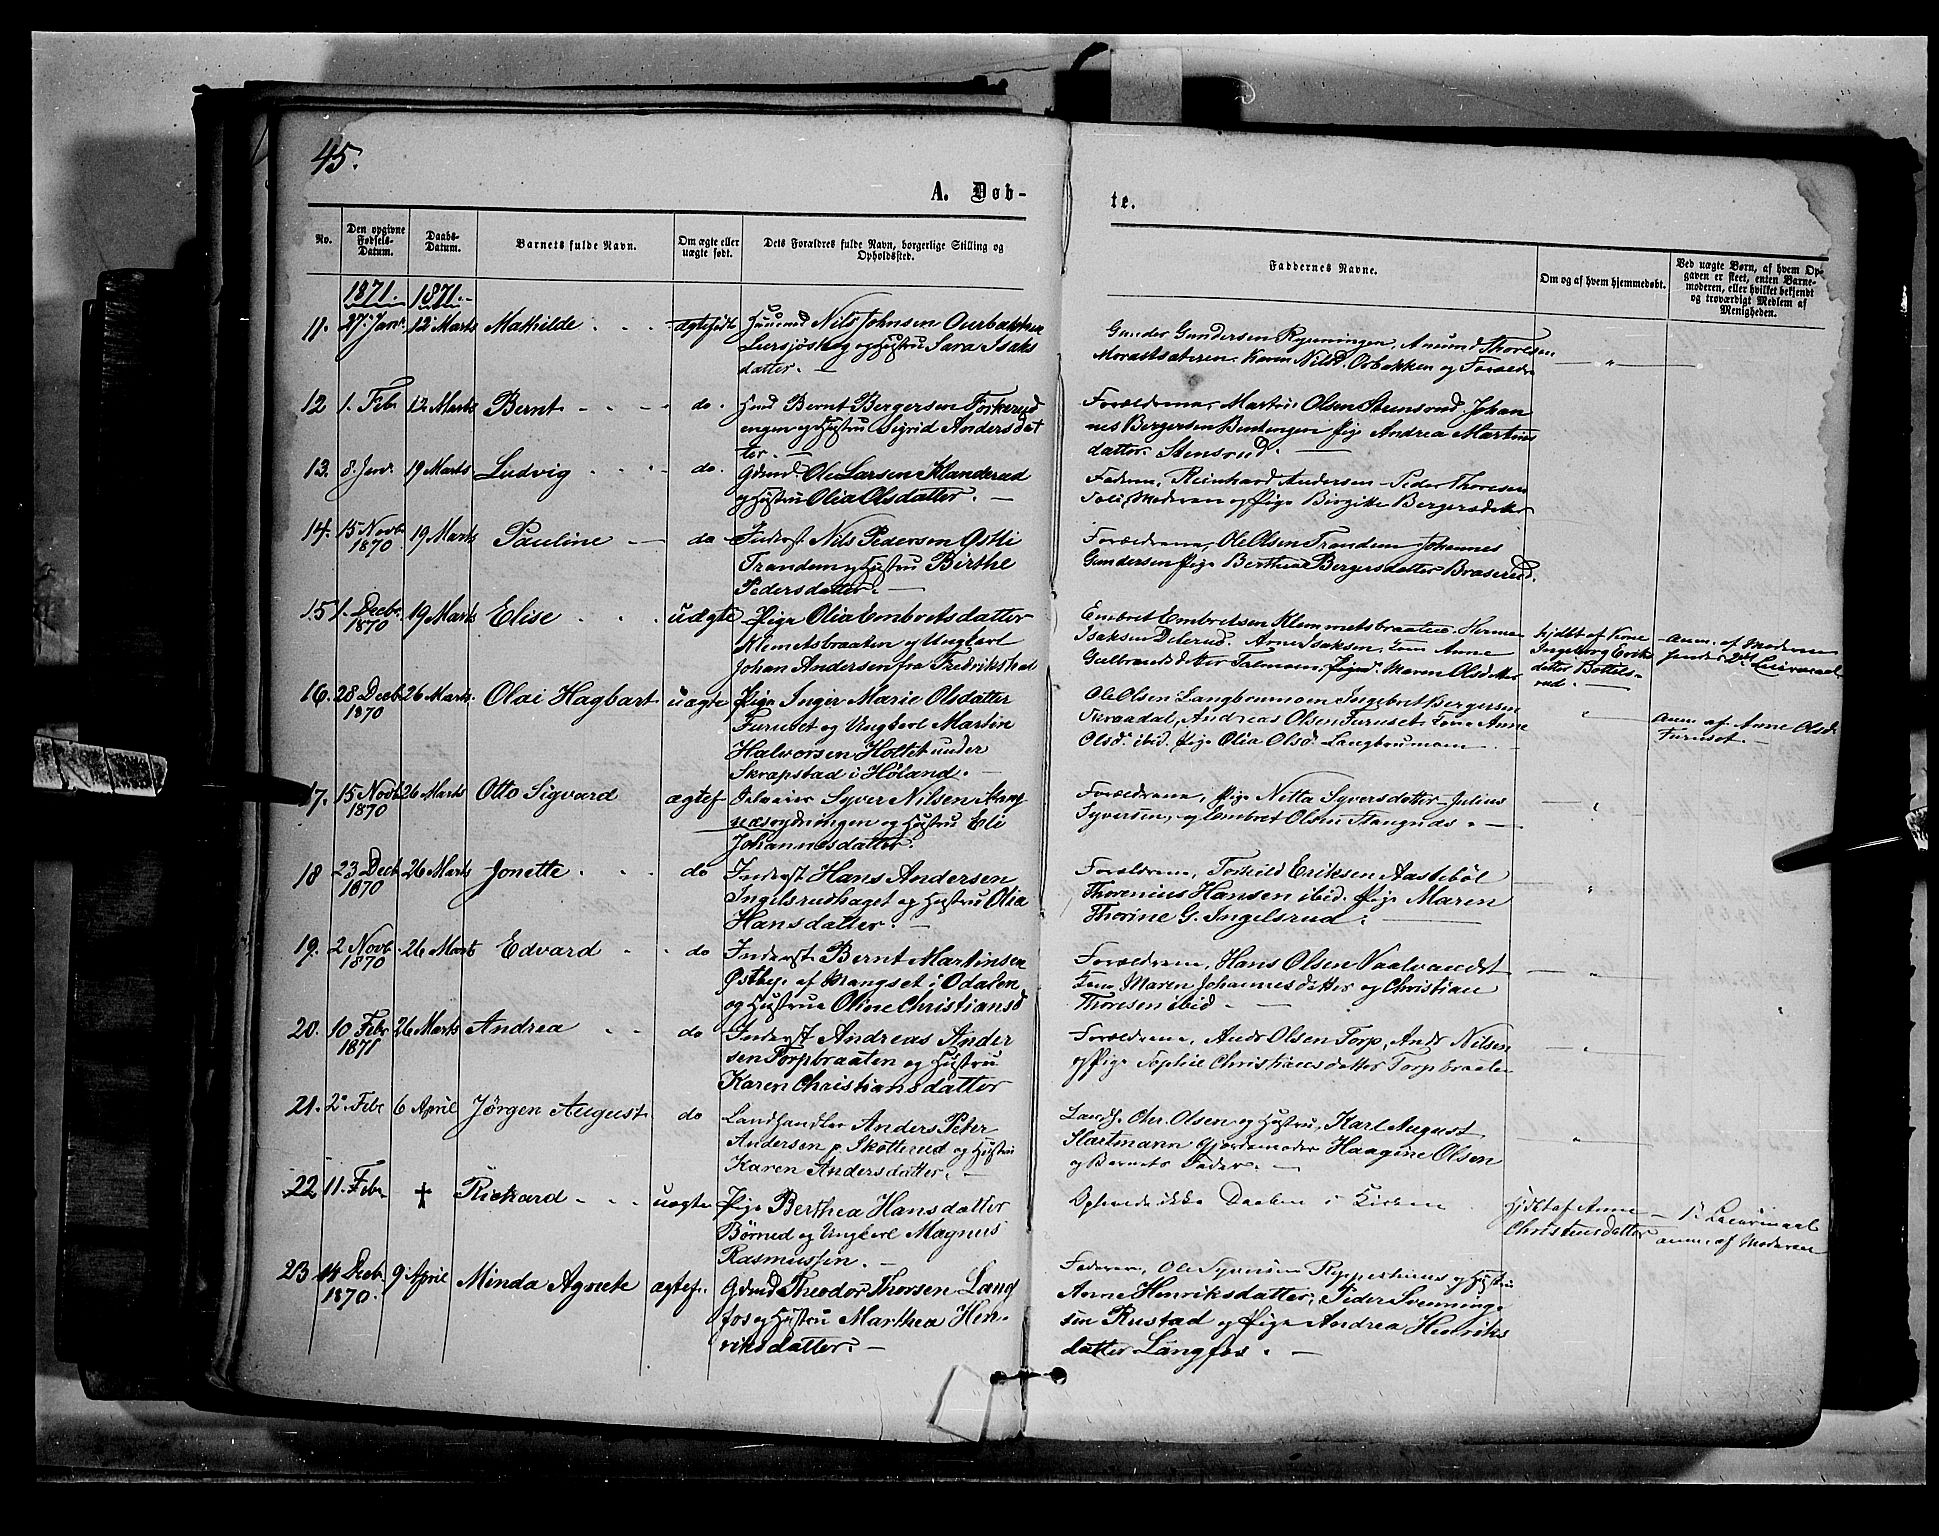 45.
A. Døb-
te.
No.
Den opgivne Fødsels-Datum.
Daabs-Datum.
Barnets fulde Navn.
Om ægte eller uægte født.
Dets Forældres fulde Navn, borgerlige Stilling og Opholdssted.
Faddernes Navne.
Om og af hvem hjemmedøbt.
Ved uægte Børn, af hvem Opgaven er skeet, enten Barnemoderen, eller hvilket bekjendt og troværdigt Medlem af Menigheden.
1871. 1871.
11. 27. Janr. 12 Marts Mathilde ægtefødt Nils Johnsen
og Hustru Sara Isaks
datter. —
Gunder Gundersen Anund Thoresen
Karen Nilsd. og Forældre
12 1. Febr. 12 Marts Bernt do. Bernt Bergersen Torkerud
engen og Hustru Sigrid Andersdat
ter. —
Forældrene, Martin Olsen Stensrud. Johan
nes Bergersen Pige Andrea Martins
datter Stensrud. —
13. 8. Janr. 19 Marts Ludvig do. Gdmd Ole Larsen Klanderud
og Hustru Olia Olsdatter. —
Faderen, Reinhard Andersen Peder Thoresen
Moderen og Pige Birgitte Bergersdatter
14. 15 Novb. 1870 19 Marts Pauline do Inderst Nils Pedersen
Hustru Birthe
Pedersdatter. —
Forældrene, Ole Olsen Trandem Johannes
Gundersen Pige Berthea Bergersdatter Braserud.
15 1. Decbr. 1870 19 Marts Elise uægte Pige Olia Embretsdatter
Klemetsbraaten og Ungkarl
Johan Andersen fra Fredrikshal
Embret Embretsen Klemmetsbraaten. Herman
Isaksen Arne Isaksen, Anne
Gulbrandsdatter Maren Olsdatter
hjdbt af Kone
Ingeborg Erik
datter
rud. —
anm. af Moderen
16. 28 Decb. 1870 26 Marts Olai Hagbart uægte Pige Inger Marie Olsdatter
Furuset og Ungkarl Martin
Halvorsen Holtet under
Skrapstad i Høland. —
Ole Olsen Langbrumoen Ingebret Bergersen
Andreas Olsen Furuset. Anne
Olsd. ibid. Pige Olia Olsd. Langbrumoen
anm. af Anne Olsd.
Furuset. —
17. 15 Novb. 1870 26 Marts Otto Sigvard ægtef Selveier Syver Nilsen Stang
og Hustru Eli
Johannesdatter.
Forældrene, Pige Netta Syversdatter Julius
Syversen, og Embret Olsen Stangnæs. —
18 23 Decb. 1870 26 Marts Jonette do Inderst Hans Andersen
Ingelsrudhaget og Hustru Olia
Hansdatter. —
Forældrene, Torkild Eriksen Aastebøl
Thorenius Hansen ibid. Pige Maren
Thorine G. Ingelsrud. —
19. 2 Novb. 1870 26 Marts Edvard do Inderst Bernt Martinsen
Østbye af Mangset i Odalen
og Hustrue Oline Christiansd
Forældrene, Hans Olsen Vaalvandet
Kone Maren Johannesdatter og Christian
Thoresen ibid —
20. 10 Febr 1871 26 Marts Andrea do Inderst Andreas Ander
sen Torpbraaten og Hustru
Karen Christiansdatter
Forældrene, Andr Olsen Torp, Andr Nilsen
og Pige Sophie Christiansdatter Torpbraaten
21. 2. Febr 6 April Jörgen August do Landhandler Anders Peter
Andersen p. Skotterud og Hustru
Karen Andersdatter. —
Landh. Chr. Olsen og Hustru, Karl August
Hartmann Gjordemoder Haagine Olsen
og Barnets Fader. —
22 11. Febr † Rickard uægte Pige Berthea Hansdatter
Börned og Ungkarl Magnus
Rasmussen. —
Opleved ikke Daaben i Kirken
hjdbt af Anne
Christensdatter
1. Leiermaal
anm. af Moderen
23. 14 Decb. 1870. 9 April Minda Agnete ægtef. Gdmd Theodor Thorsen Lang
fos og Hustru Marthea Hen-
riksdatter. —
Faderen, Ole Syversen og Hustru
Anne Henriksdatter, Peder Svenning
sen Rustad og Pige Andrea Henriks
datter Langfos. —